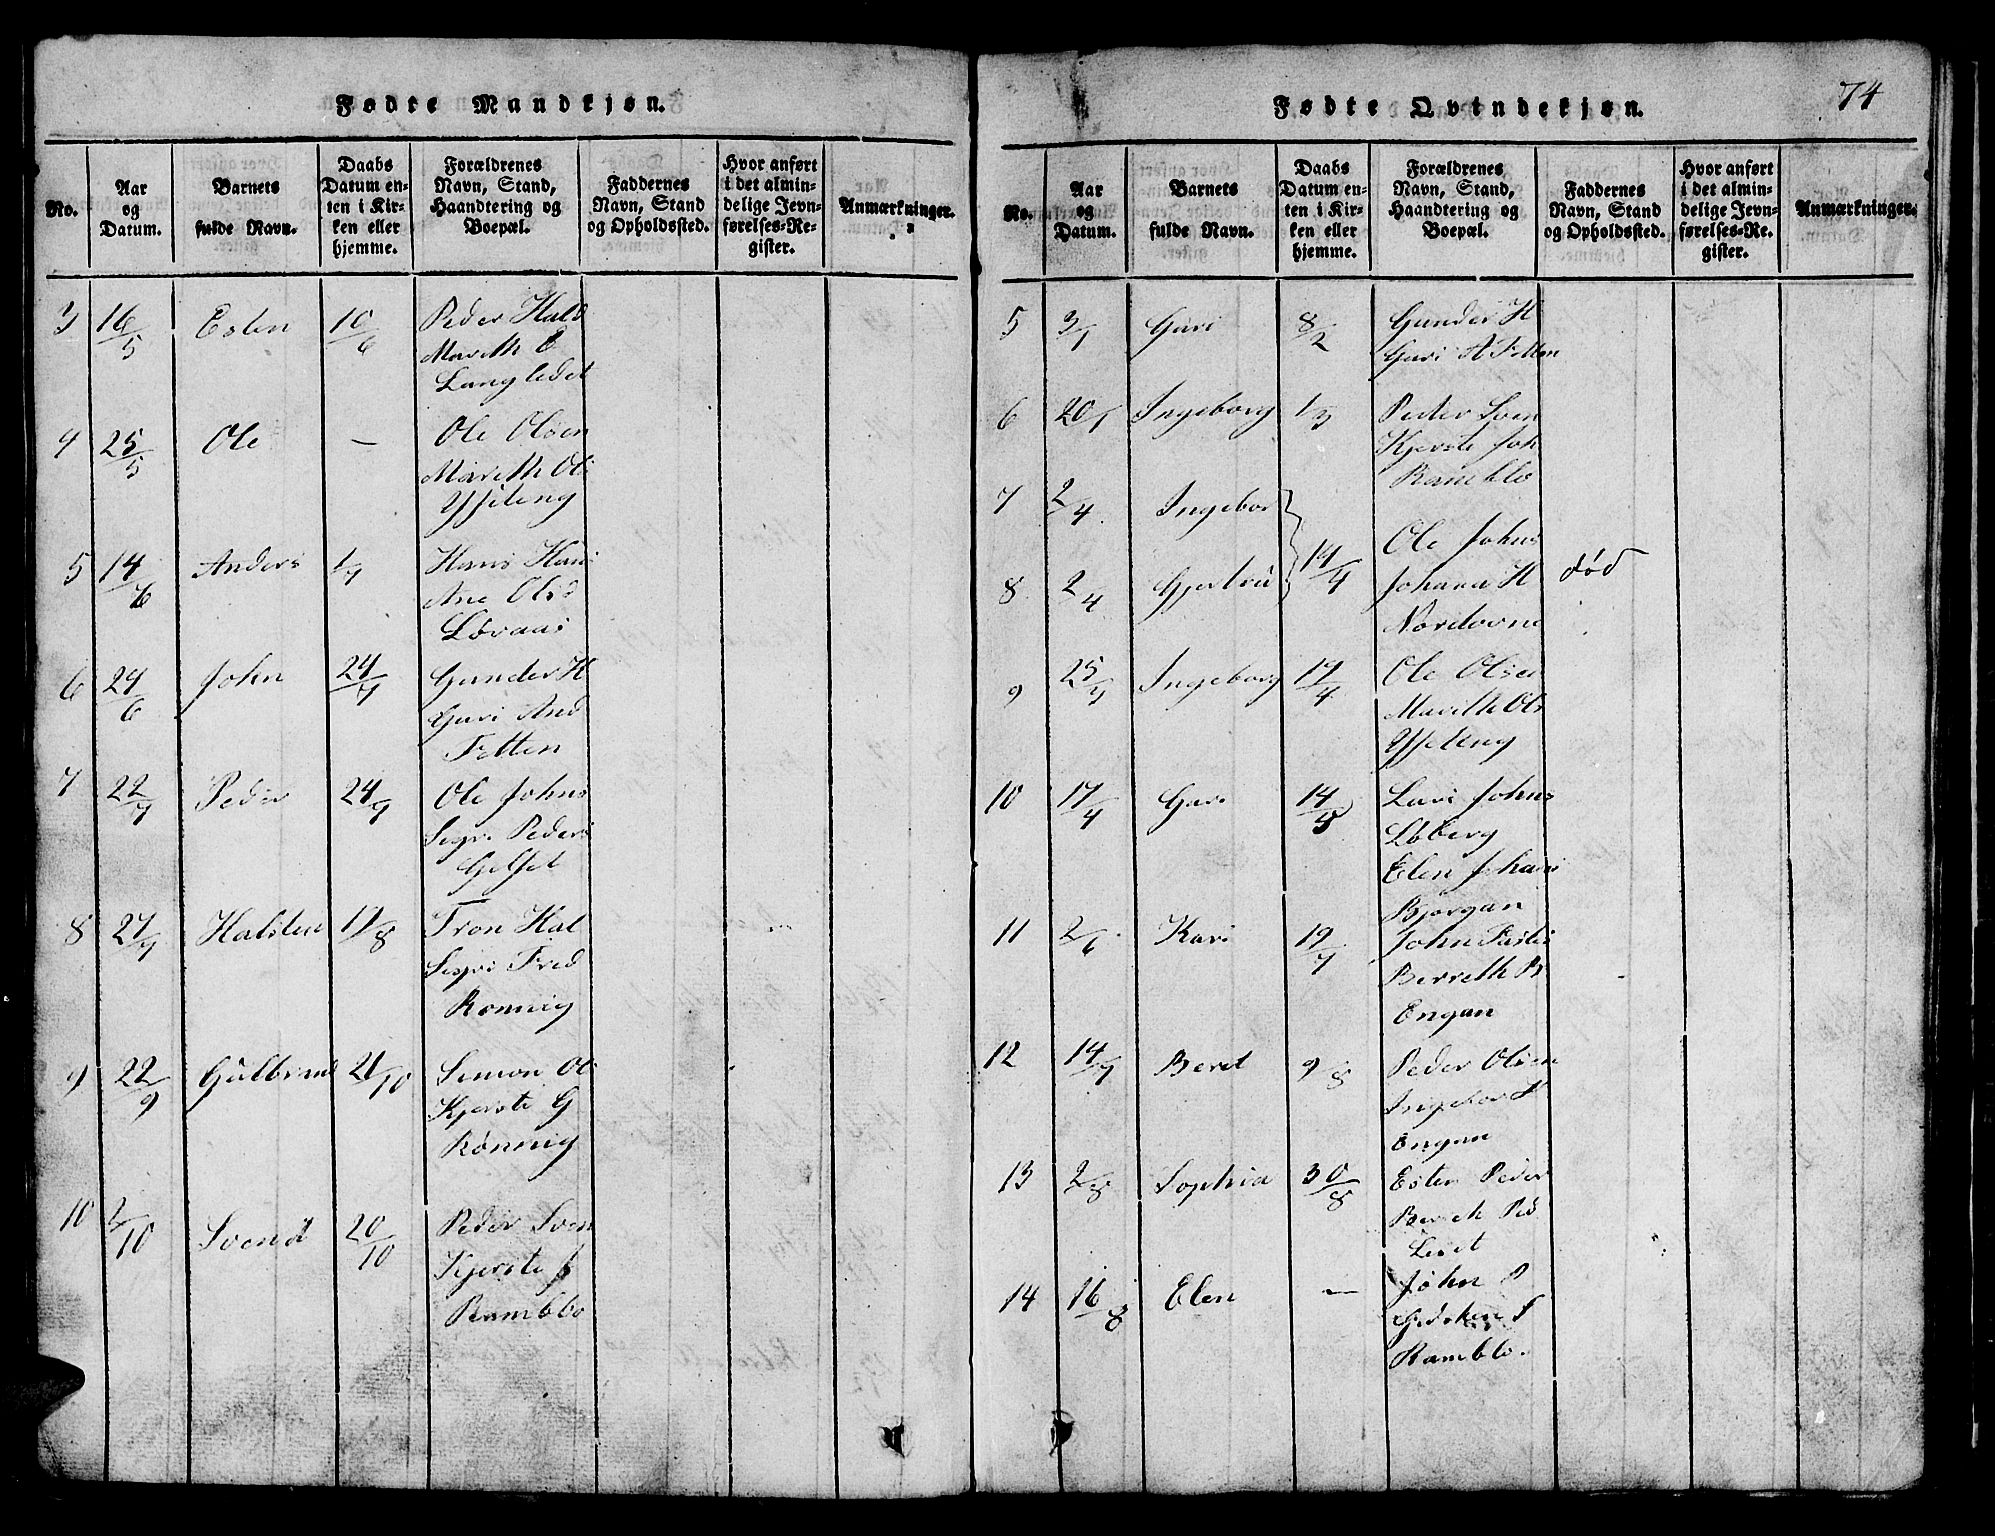 74
Fødte Mandkjøn.
No.
Aar og Datum.
Barnets fulde Navn.
Daabs Datum enten i Kirken eller hjemme.
Forældrenes Navn, Stand, Haandtering og Boepæl.
Faddernes Navn, Stand og Opholdssted.
Hvor anført i det almindelige Jevnførelses-Register.
Anmærkninger.
3 16/5 Esten 10/6 Peder Hald
Mareth E
Langledet
4 25/5 Ole — Ole Olsen
Mareth Ols
Ysseteng
5 14/6 Anders 1/7 Hans Hans
Ane Olsd
Løvaas
6 24/6 John 24/7 Gunder H
Guri And
Fotten
7 22/7 Peder 24/7 Ole Johns
Segri Peders
8 27/7 Halsten 17/8 Tron Hal
Segri Fred
Rønnig
9 22/9 Gulbrand 21/10 Simon Ol
Kjerste G
Rønnig
10 2/10 Svend 20/10 Peder Sven
Kjerste J
Ramblo
Fødte Qvindekjøn.
No.
Aar og Datum.
Barnets fulde Navn.
Daabs Datum enten i Kirken eller hjemme.
Forældrenes Navn, Stand, Haandtering og Boepæl.
Faddernes Navn, Stand og Opholdssted.
Hvor anført i det almindelige Jevnførelses-Register.
Anmærkninger.
5 3/1 Guri 8/2 Gunder H
Guri A Fotten
6 20/1 Ingeborg 1/3 Peder Sven
Kjerste Joh
Ramblo
7 2/4 Ingebor
Ole Johns
8 2/4 Gjertru 14/4 Johana H død
Nordovne
9 Ingeborg Ole Olsen
Marith Ols
Ysseteng
10 17/4 Guri Lars Johns
Løberg
Elen Johans
Bjørgan
11 2/6 Kari 19/7 John
Berreth P
Engan
12 14/7 Beret 9/8 Peder Olsen
Ingebor
Engan
13 2/8 Sophia 30/8 Esten Peder
Bereth
14 16/8 Elen — John P
Ramblo.